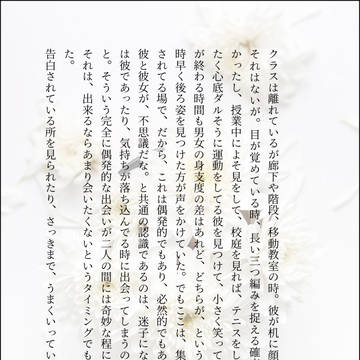 クラスは離れているが廊下や階段、移動教室の時。彼が机に顔
それはないが。目が覚めている時、長い三つ編みを捉える確
かったし、授業中によそ見をして、校庭を見れば、テニスを
たく心底ダルそうに運動をしてる彼を見つけて、小さく笑って
が終わる時間も男女の身支度の差はあれど、どちらが、とい
時早く後ろ姿を見つけた方が声をかけていた。でもここは、集
されてる場で、だから、これは偶発的でもあり、必然的でもあ
彼と彼女が、不思議だな。と共通の認識であるのは、迷子にな
は彼であったり、気持ちが落ち込んでる時に出会ってしまうの
と。そういう完全に偶発的な出会いが二人の間には奇妙な程に
それは、出来るならあまり会いたくないというタイミングでも
た。
告白されている所を見られたり、さっきまで、うまくいってい